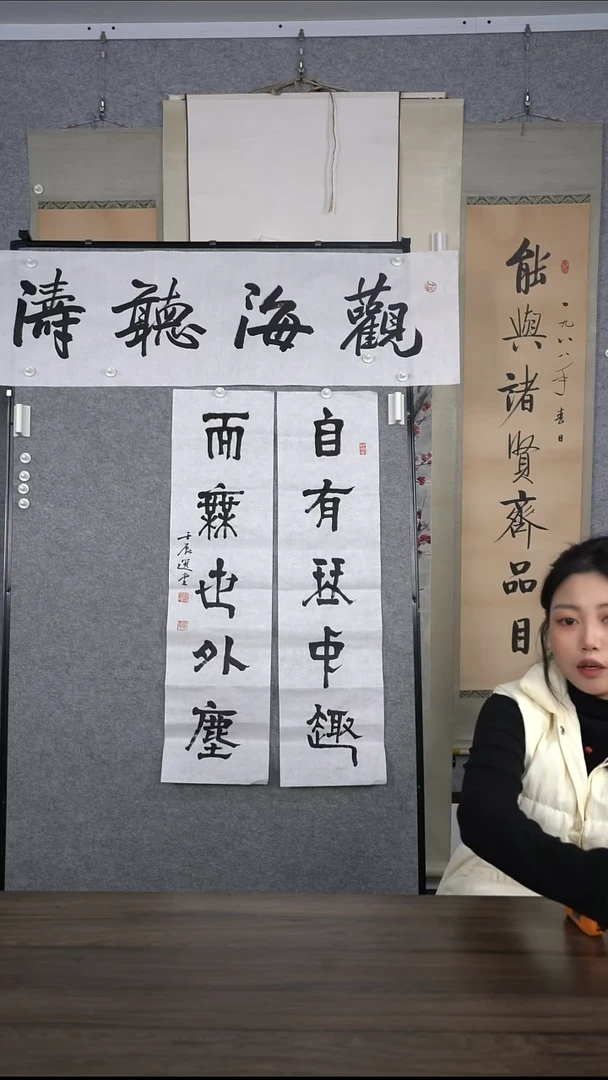 觀海聽濤
自有琹中趣
而無世外塵
壬辰選堂
能與諸賢齊品目
一九八八年春日